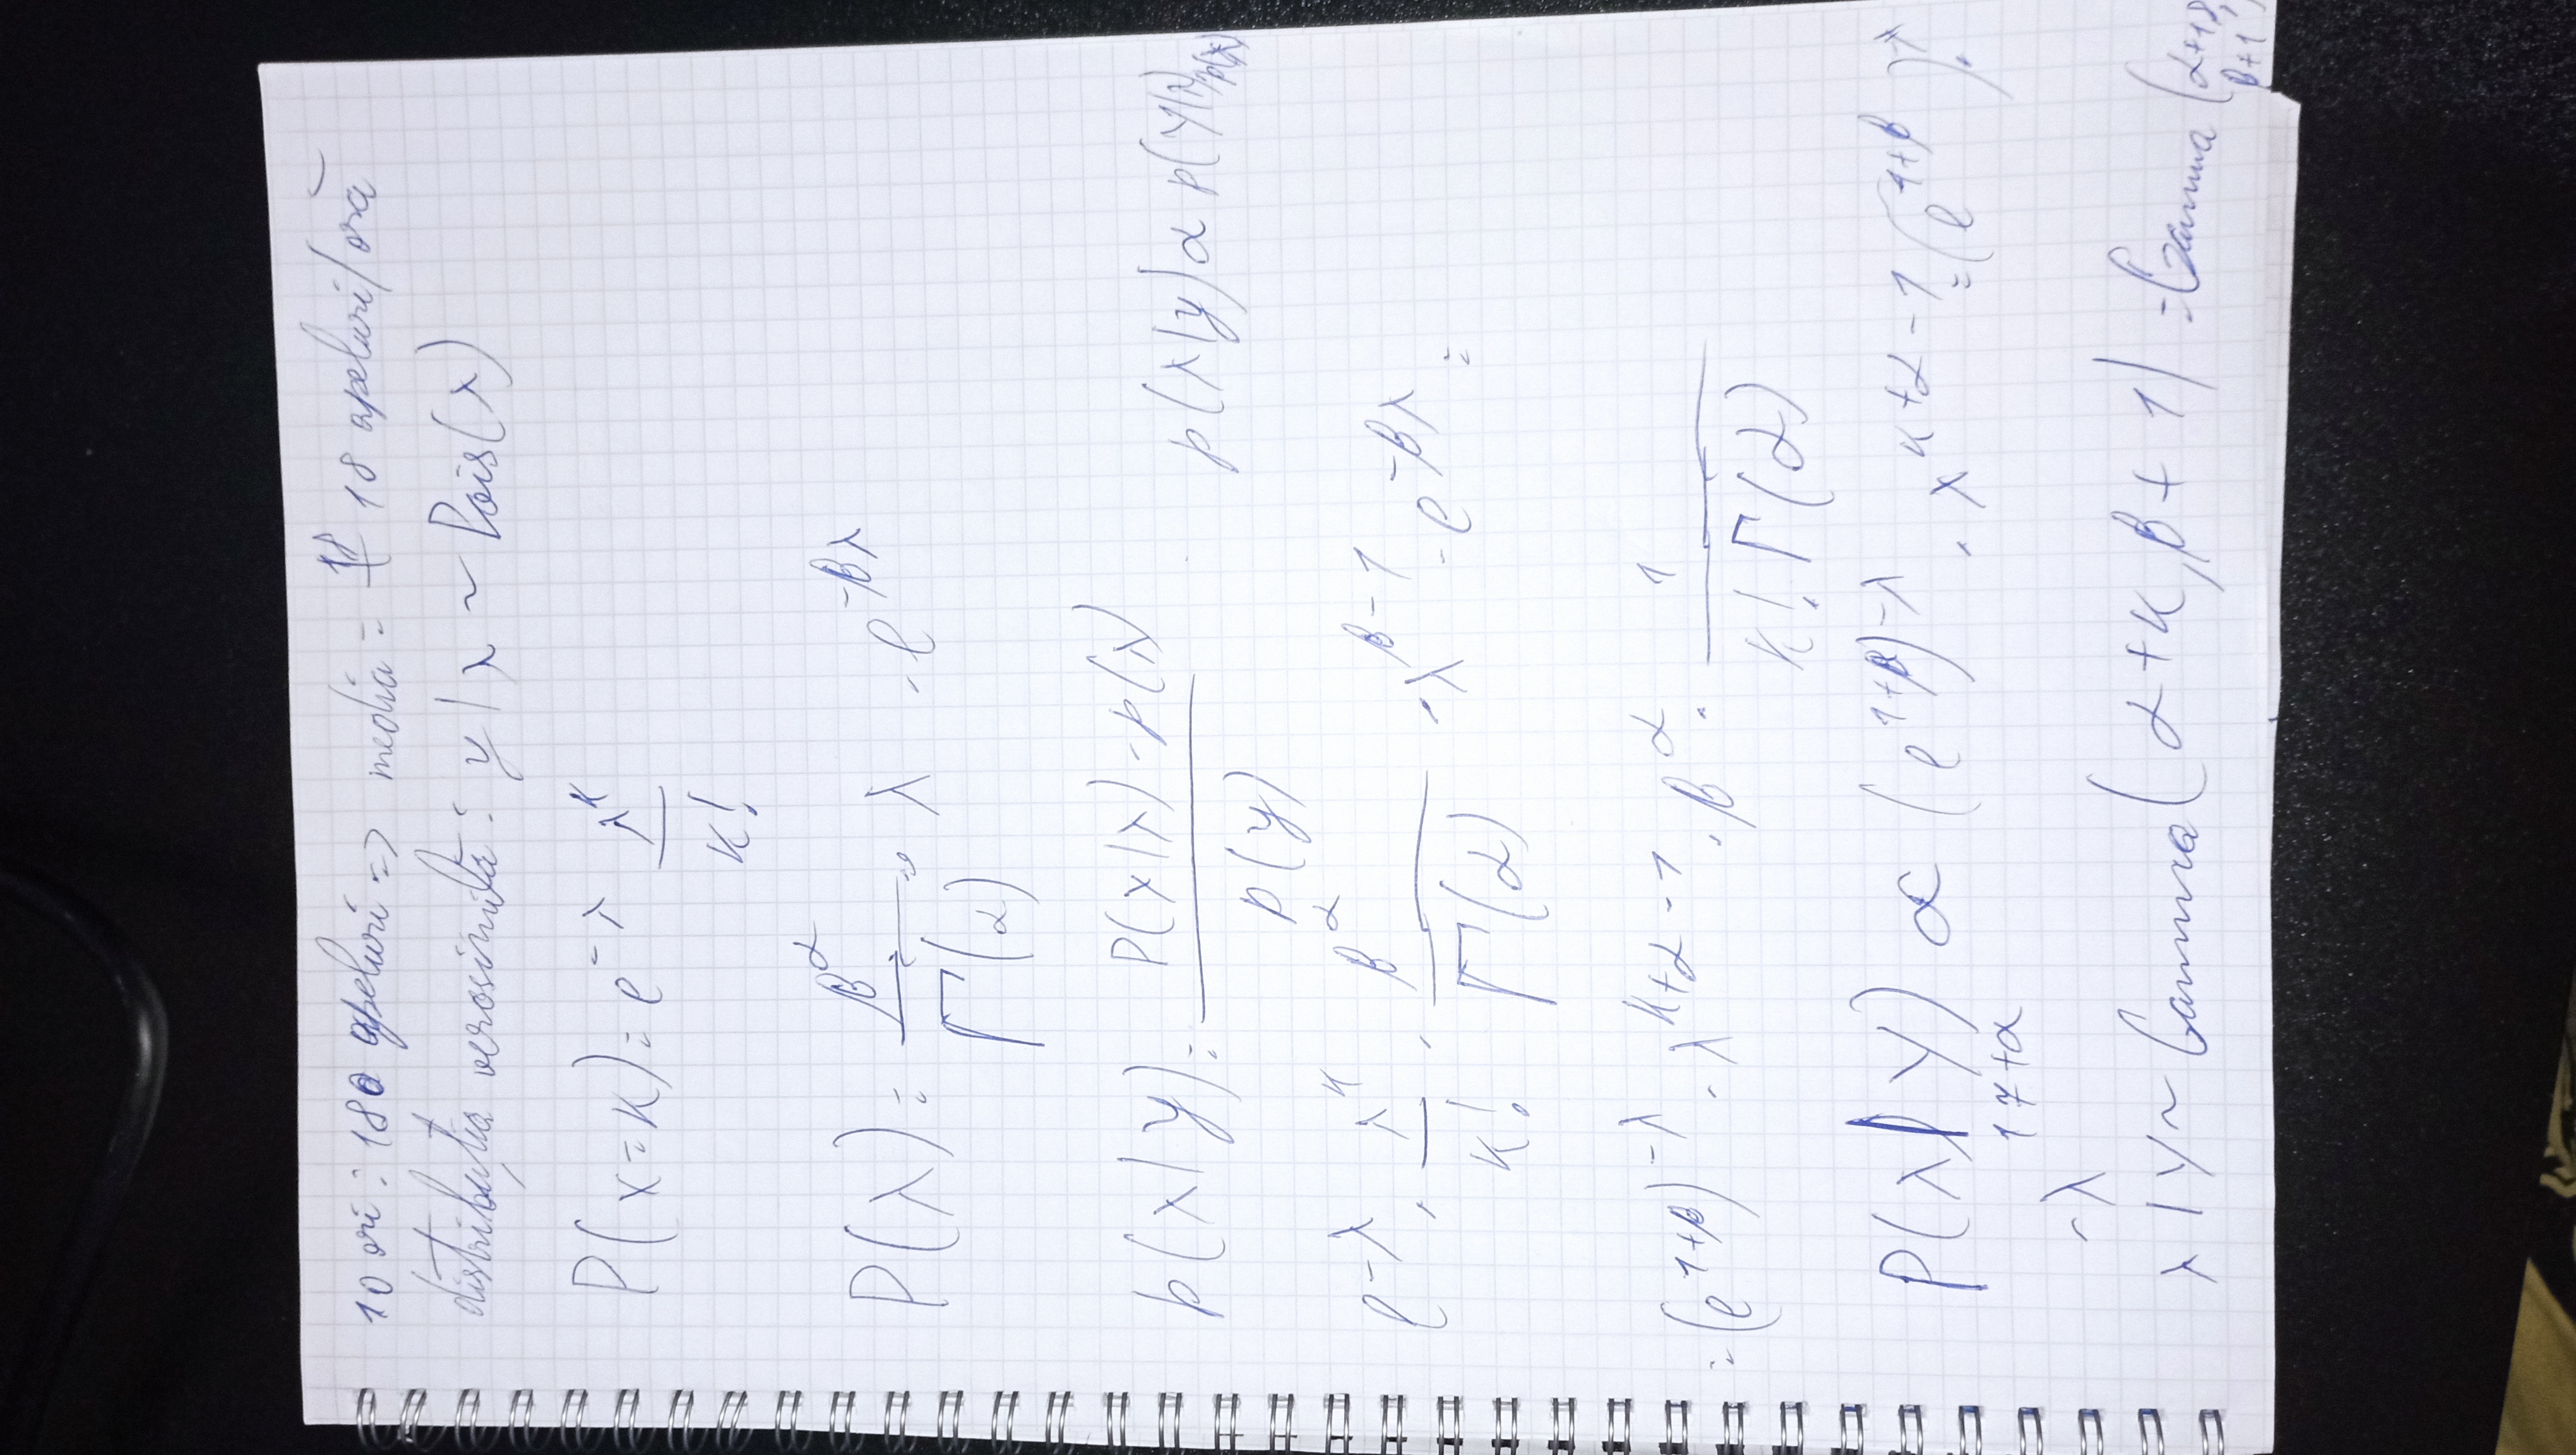 10 ori : 180 apeluri => media = 18 apeluri/oră
distribuția verosimilă : y | λ ~ Pois(λ)
P(x=k) = e^{-λ} λ^k / k!
P(λ) = β^α / Γ(α) · λ · e^{-βλ}
p(λ|y) = P(y|λ) · p(λ) / p(y)    p(λ|y) ∝ p(Y|λ) p(λ)
e^{-λ} · λ^k / k! · β^α / Γ(α) · λ^{β-1} · e^{-βλ} =
= (e^{1+β})^{-λ} · λ^{k+α-1} · β^α · 1 / k! Γ(α)
P(λ|Y) ∝ (e^{1+β})^{-λ} · λ^{k+α-1} = (e^{1+β})^λ ·
17+α
-λ
λ | Y ~ Gamma(α+k, β+1) = Gamma(α+18, β+1)